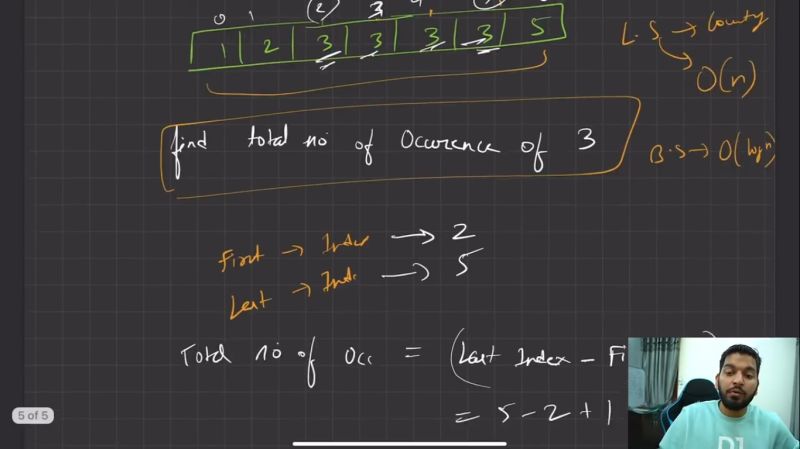 0 1 2 3
1 2 3 3 3 3 5
L.S → County
O(n)
find total no of Occurence of 3
B.S → O(logn)
First → Index → 2
Last → Inde → 5
Total no of Occ = (Last Index - Fi
= 5 - 2 + 1
5 of 5